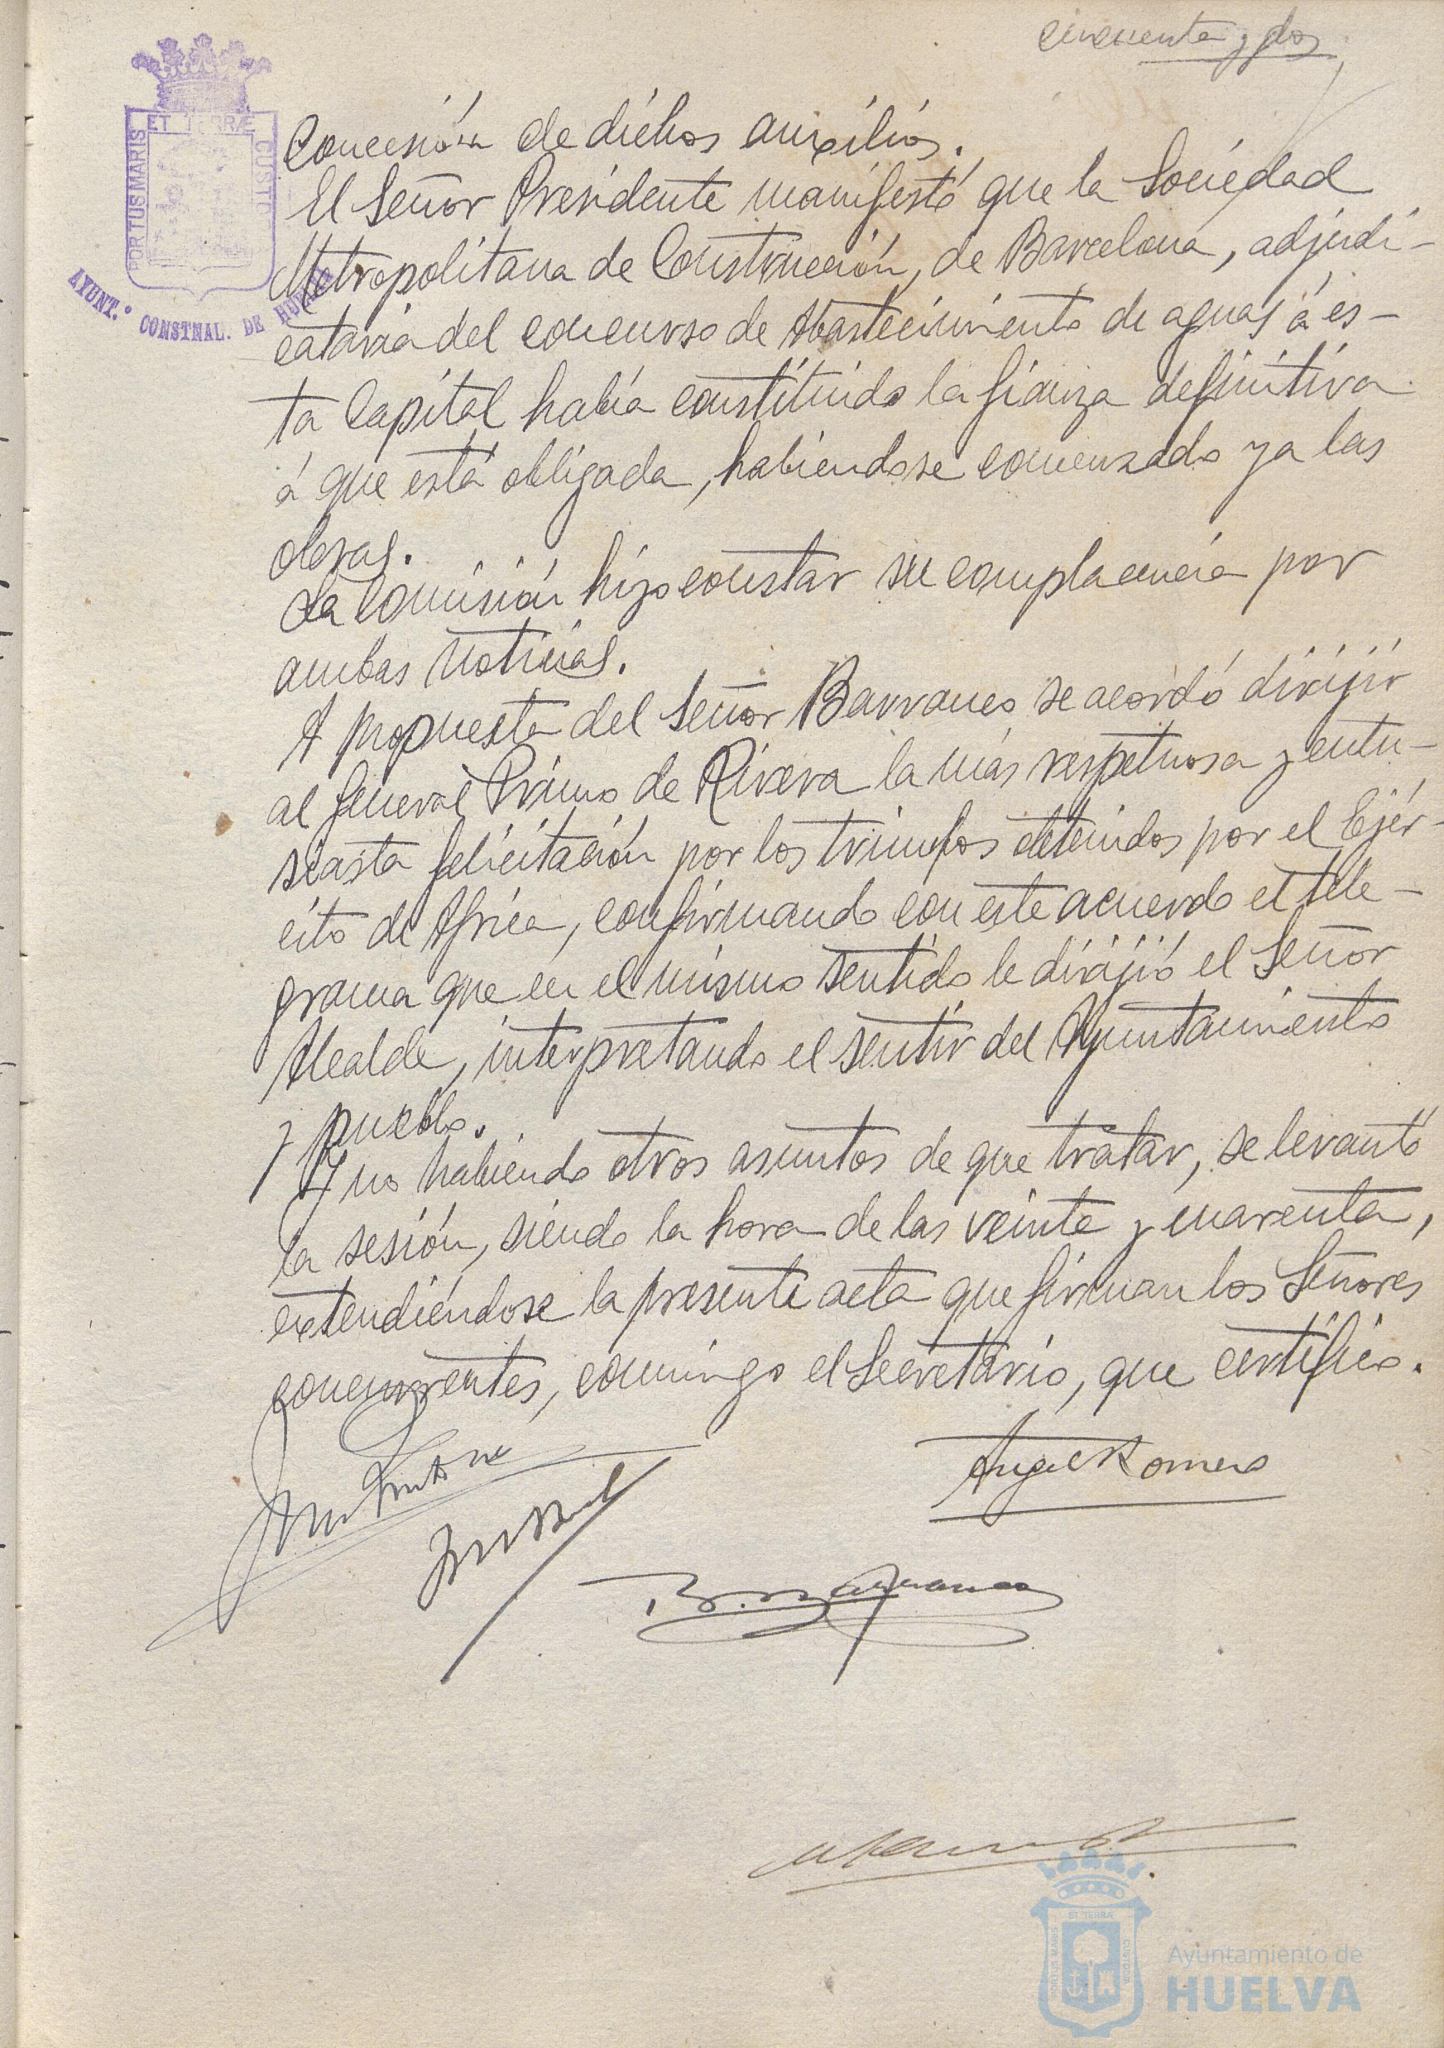 cincuenta y dos
PORTUS MARIS
ET TERRÆ
CUSTO
AYUNT.º CONSTNAL. DE HUELVA
Concesión de dichos auxilios.
El Señor Presidente manifestó que la Sociedad
Metropolitana de Construcción, de Barcelona, adjudi-
cataria del concurso de Abastecimiento de aguas á es-
ta Capital había constituido la fianza definitiva
á que está obligada, habiendose comenzado ya las
obras.
La Comisión hizo constar su complacencia por
ambas noticias.
A propuesta del Señor Barranco se acordó dirijir
al General Primo de Rivera la más respetuosa y entu-
siasta felicitación por los triunfos obtenidos por el Ejér-
cito de Africa, confirmando con este acuerdo el tele-
grama que en el mismo sentido le dirijió el Señor
Alcalde, interpretando el sentir del Ayuntamiento
y pueblo.
Y no habiendo otros asuntos de que tratar, se levantó
la sesión, siendo la hora de las veinte y cuarenta,
extendiéndose la presente acta que firman los Señores
concurrentes, conmigo el Secretario, que certifico.
Angel Romero
B. Barranco
ET TERRA
PORTUS MARIS
CUSTODIA
Ayuntamiento de
HUELVA